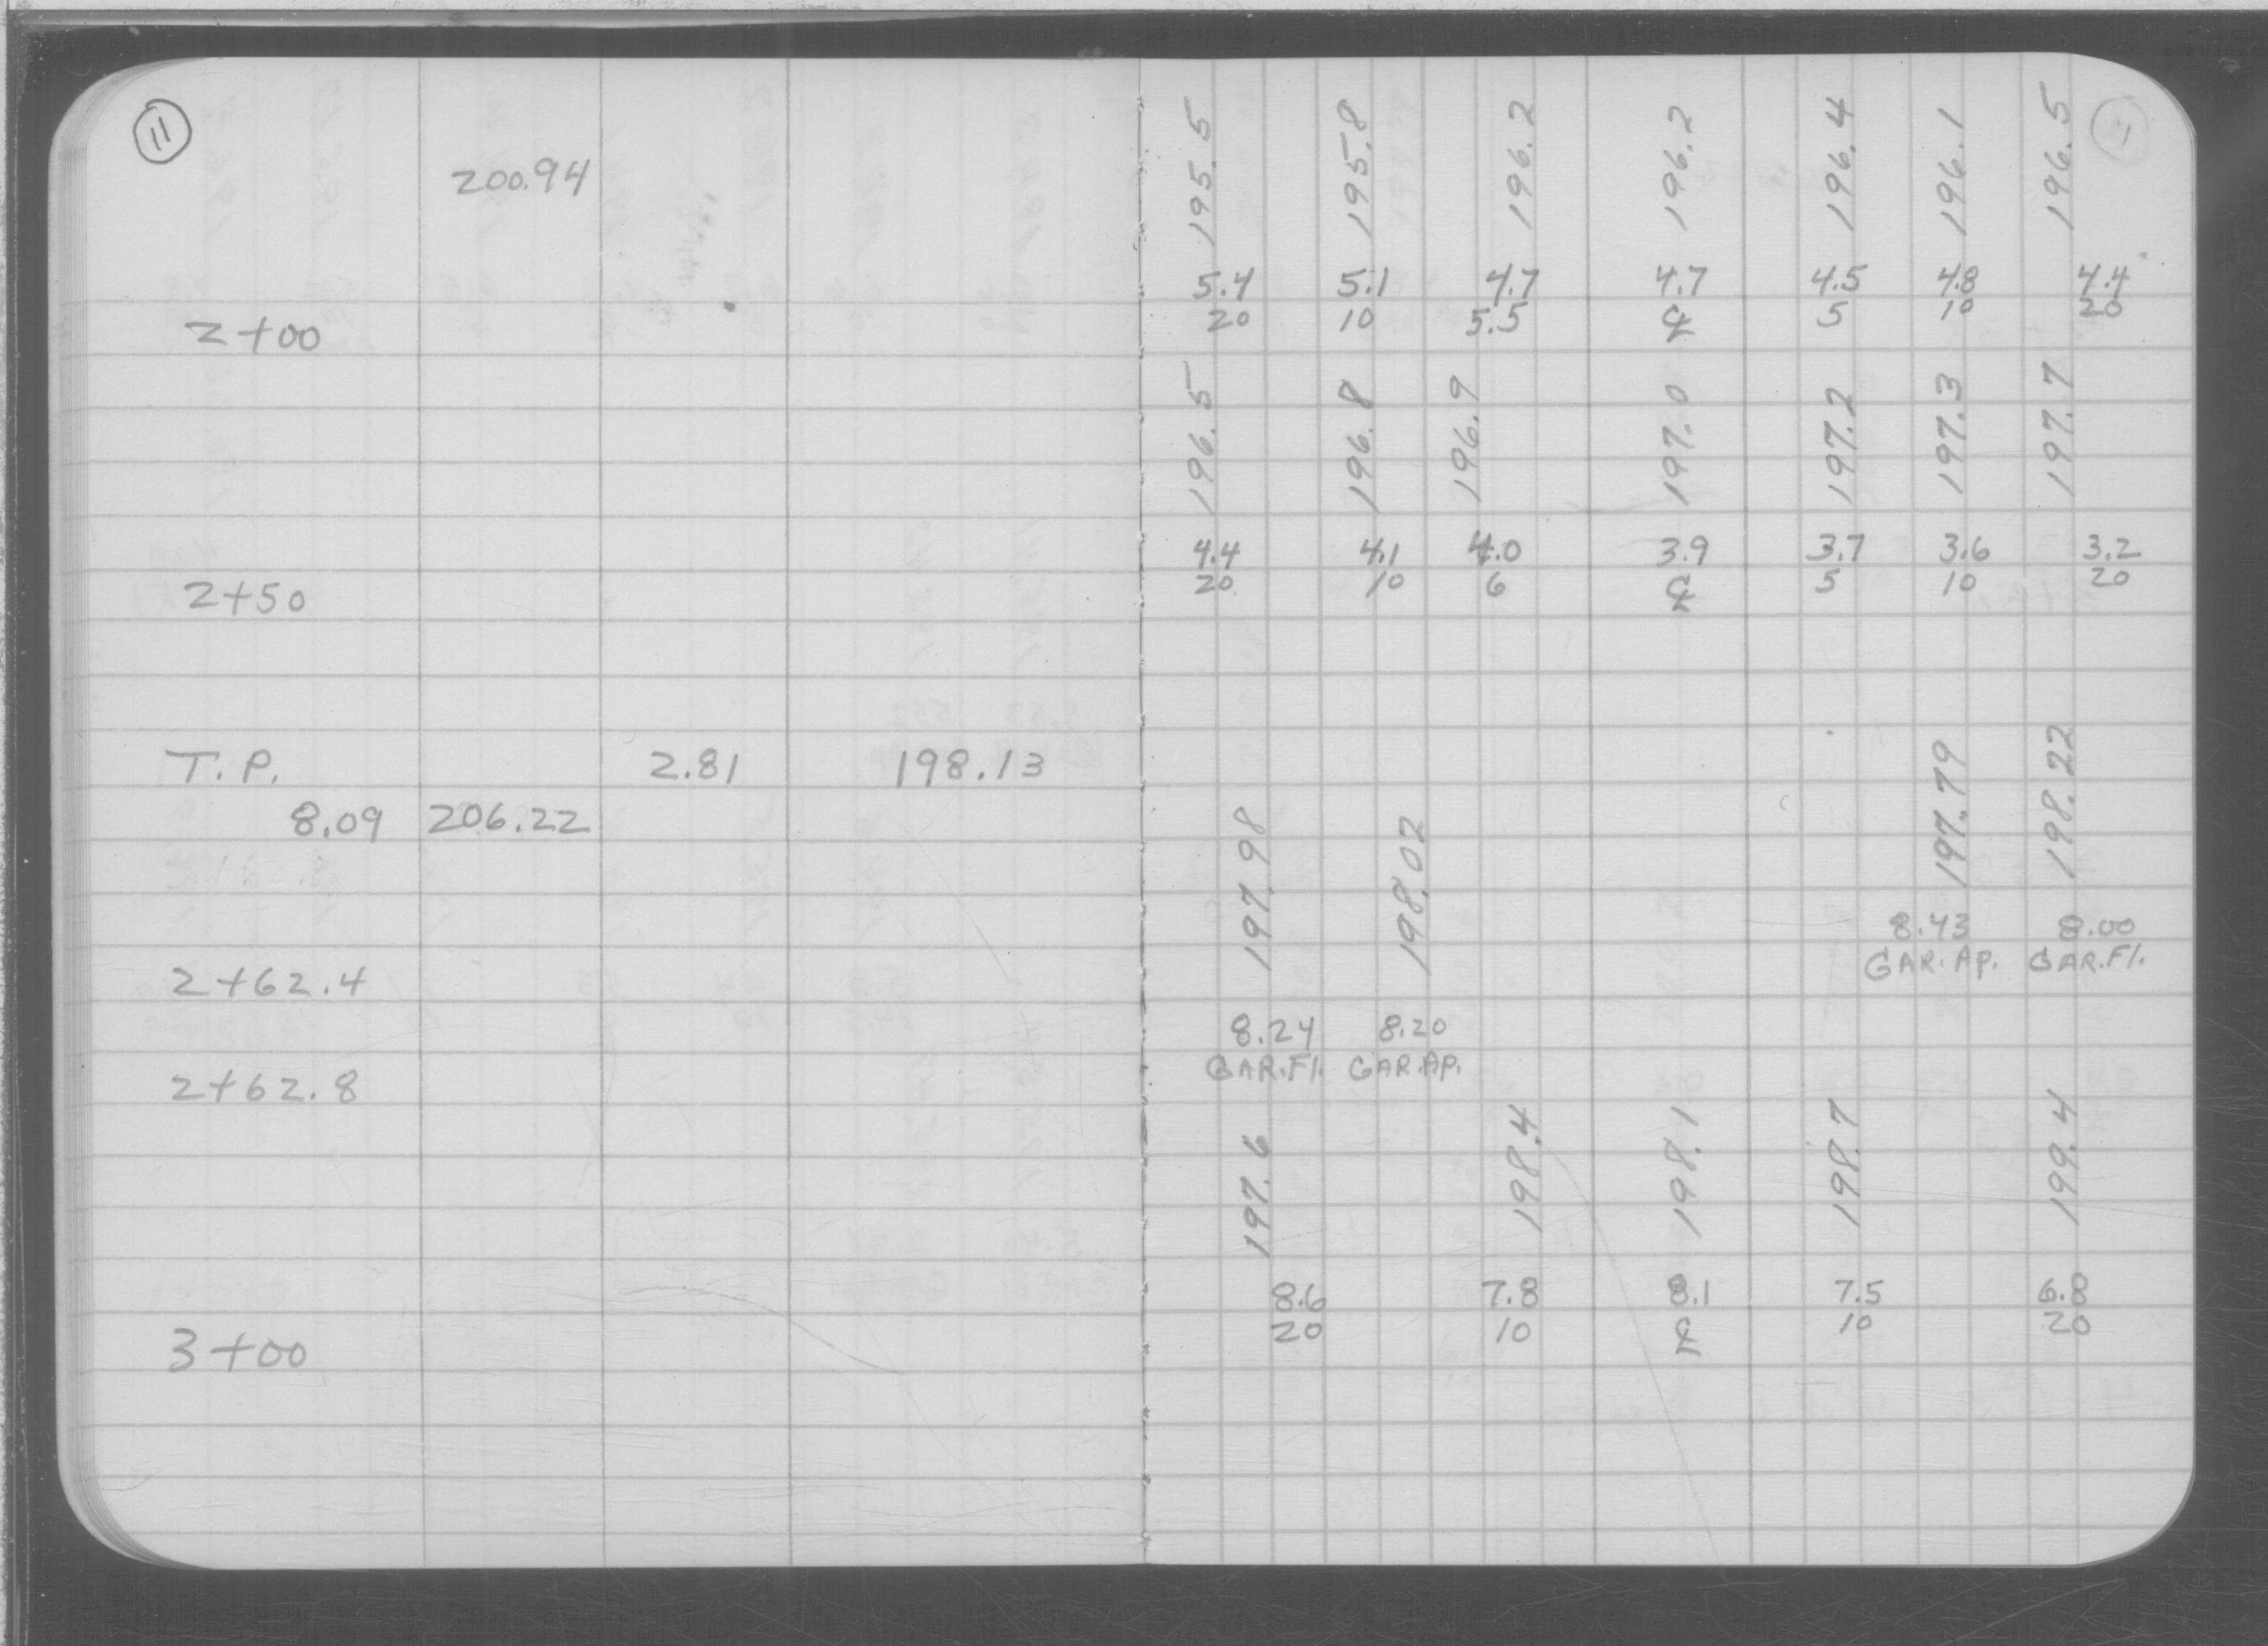 11
200.94
195.5 195.8 196.2 196.2 196.4 196.1 196.5
5.4 5.1 4.7 4.7 4.5 4.8 4.4
2+00 20 10 5.5 ℄ 5 10 20
196.5 196.8 196.9 197.0 197.2 197.3 197.7
4.4 4.1 4.0 3.9 3.7 3.6 3.2
2+50 20 10 6 ℄ 5 10 20
T.P. 2.81 198.13
8.09 206.22
197.98 198.02 197.79 198.22
8.43 8.00
2+62.4 GAR. AP. GAR. Fl.
8.24 8.20
2+62.8 GAR. Fl. GAR. AP.
197.6 198.4 198.1 198.7 199.4
8.6 7.8 8.1 7.5 6.8
3+00 20 10 ℄ 10 20